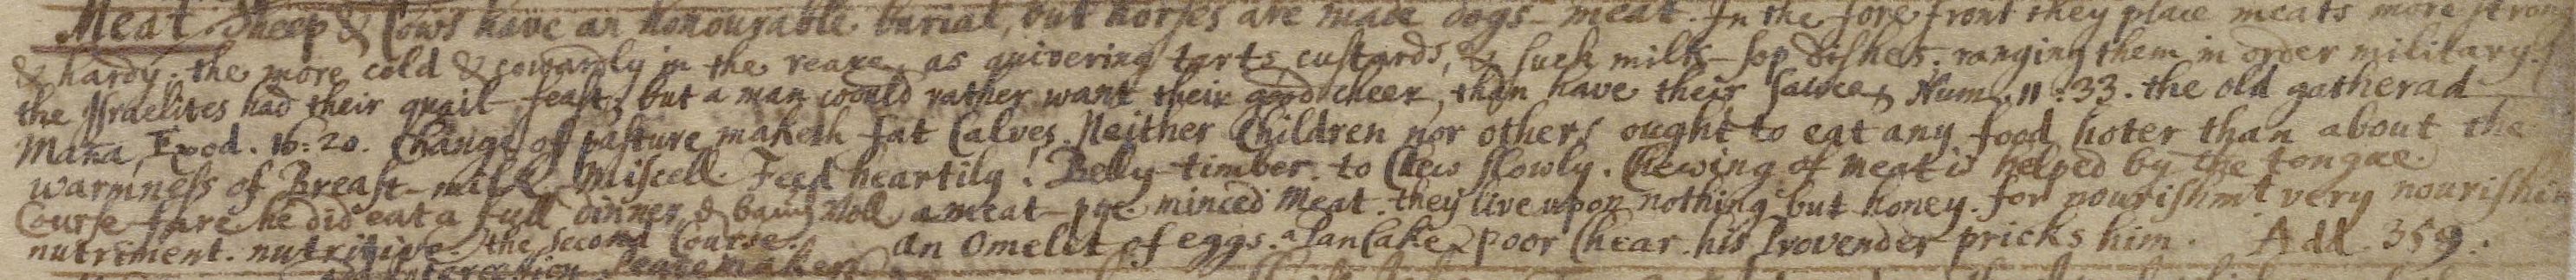 Meat. Sheep & Cows have an honourable burial, but horses are made dogs-meat. In the fore front they place meats more strong
& hardy. the more cold & cowardly in the reare, as quivering tarts, custards, & such milk-sop dishes. ranging them in order military.
the Israelites had their quail-feast, but a man would rather want their good cheer, than have their sawce, Num. 11:33. the old gatherad
Mana, Exod. 16:20. Change of pasture maketh fat Calves. Neither Children nor others ought to eat any food hoter than about the
warmness of Breast-milk. Miscell. Feed heartily! Belly-timber. to Chew slowly. Chewing of meat is helped by the tongue.
Course fare he did eat a full dinner, & a meat-pye. minced Meat. they live upon nothing but honey. for nourishmt very nourishin
nutriment. nutritive. the second Course. an Omelet of eggs. a Pancake. poor Chear. his Provender pricks him. Add. 359.